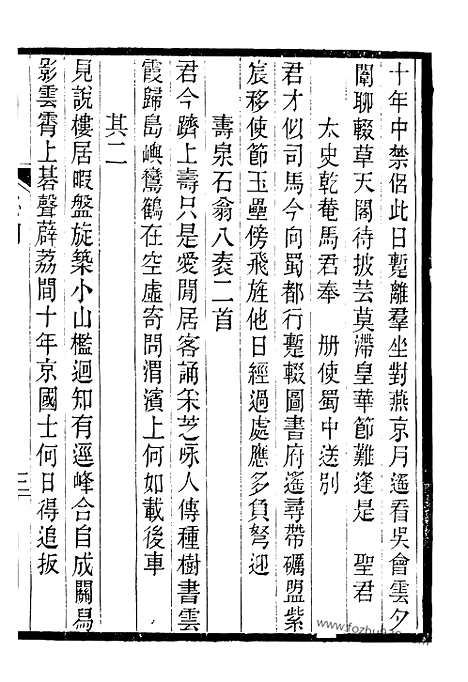 十年中禁侶此日蹔離羣坐對燕京月遙看吳會雲夕
闈聊輟草天閣待披芸莫滯皇華節難逢是 聖君
太史乾菴馬君奉 册使蜀中送別
君才似司馬今向蜀都行蹔輟圖書府遙尋帶礪盟紫
宸移使節玉壘傍飛旌他日經過處應多負弩迎
壽泉石翁八袠二首
君今躋上壽只是愛閒居客誦朱芝咏人傳種樹書雲
霞歸島嶼鸞鶴在空虛寄問渭濱上何如載後車
其二
見說樓居暇盤旋築小山檻迴知有逕峰合自成關舄
影雲霄上碁聲薜荔間十年京國士何日得追扳
三
www.fozhu920.com